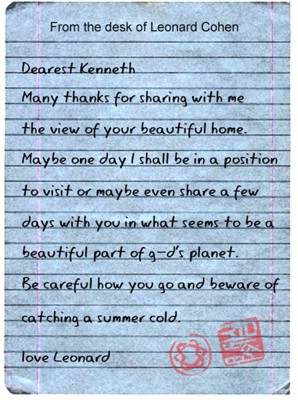 From the desk of Leonard Cohen
Dearest Kenneth
Many thanks for sharing with me
the view of your beautiful home.
Maybe one day I shall be in a position
to visit or maybe even share a few
days with you in what seems to be a
beautiful part of g-d's planet.
Be careful how you go and beware of
catching a summer cold.
love Leonard